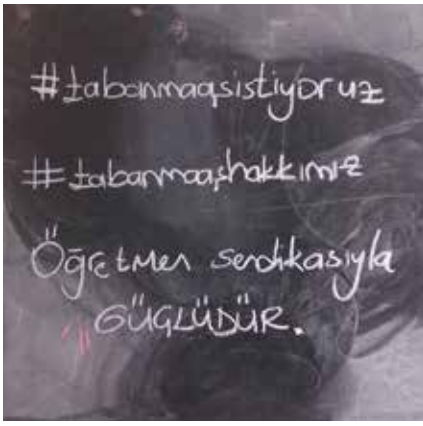 #tabanmaaşistiyoruz
#tabanmaaşhakkımız
Öğretmen sendikasıyla
GÜÇLÜDÜR.